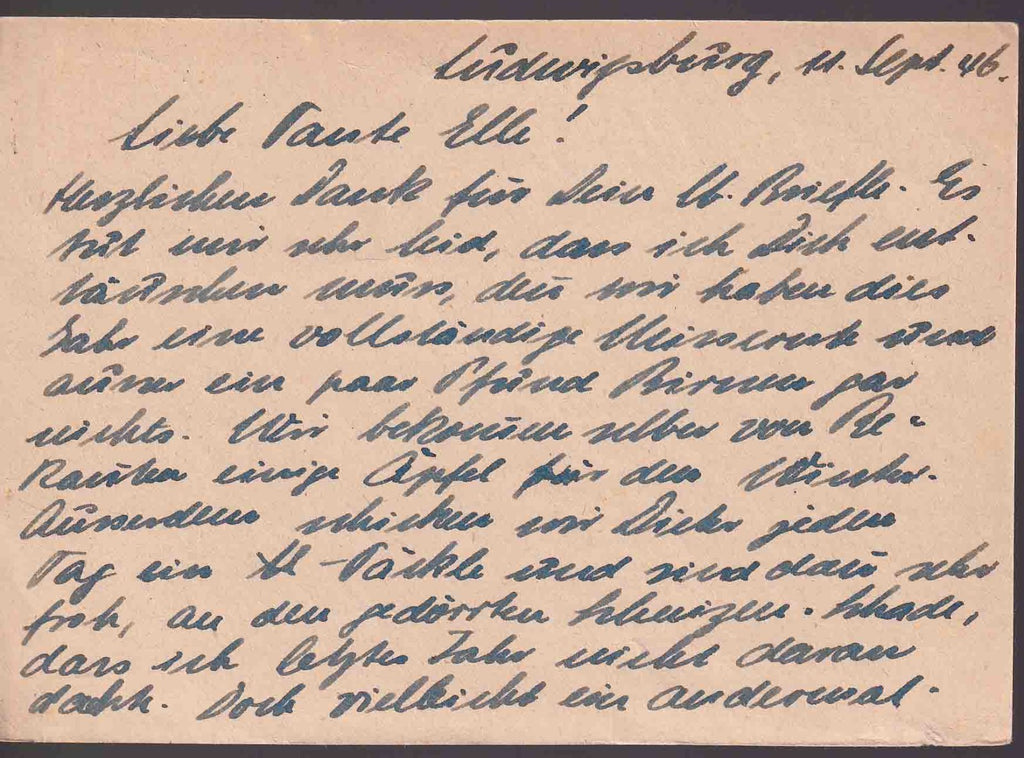 Ludwigsburg, 11. Sept. 46.
Liebe Tante Elle!
Herzlichen Dank für Dein lb. Briefle. Es
tut mir sehr leid, dass ich Dich ent-
täuschen muss, den wir haben dies
Jahr eine vollständige Missernte und
ausser ein paar Pfund Birnen gar
nichts. Wir bekommen selber von Be-
kannten einige Äpfel für den Winter.
Ausserdem schicken wir Dieter jeden
Tag ein kl. Päckle und sind dan sehr
froh, an den gedörrten Schnizen. Schade,
dass ich letztes Jahr nicht daran
dachte. Doch vielleicht ein andermal.